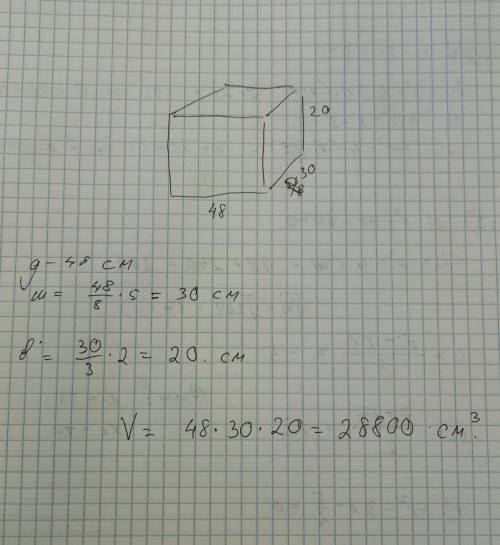 20
30
48
g - 48 см
ш = 48/8 · 5 = 30 см
в = 30/3 · 2 = 20. см
V = 48 · 30 · 20 = 28800 см³.